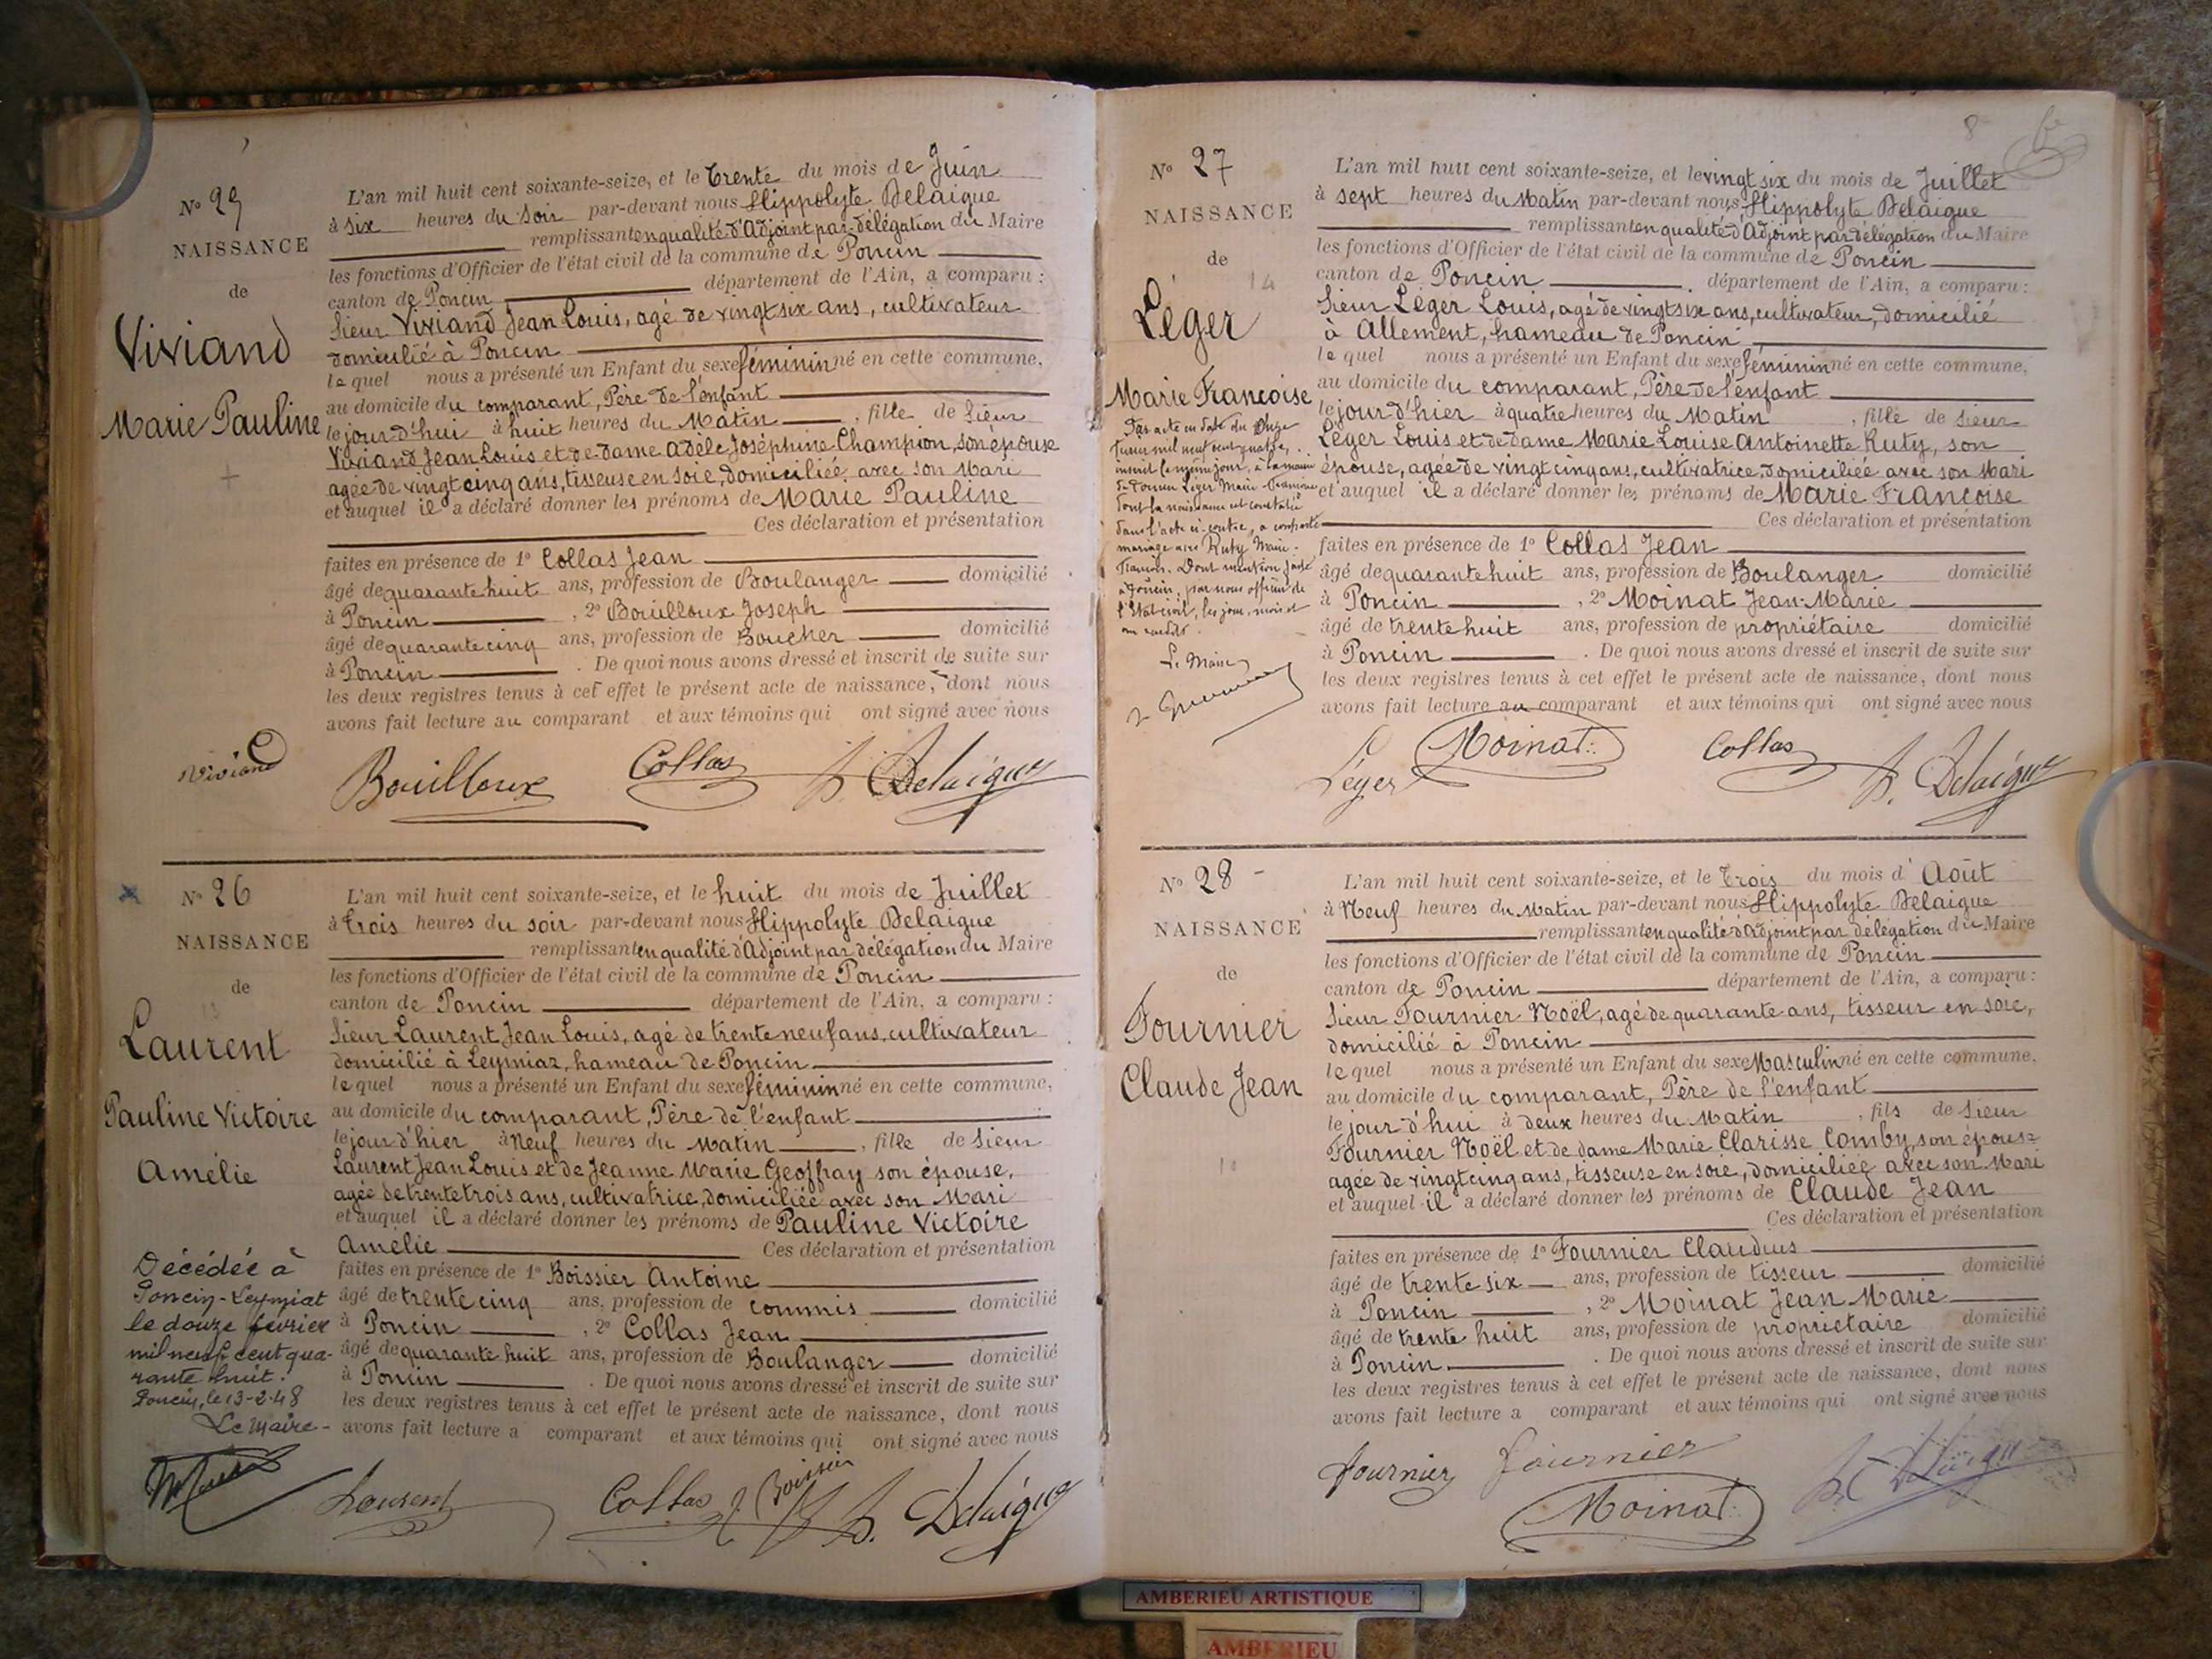 N° 25
NAISSANCE
de
Viviand
Marie Pauline
L'an mil huit cent soixante-seize, et le trente du mois de Juin
à six heures du soir par-devant nous Hippolyte Delaigue
remplissant en qualité d'Adjoint par délégation du Maire
les fonctions d'Officier de l'état civil de la commune de Poncin
canton de Poncin département de l'Ain, a comparu :
Sieur Viviand Jean Louis, agé de vingt six ans, cultivateur
domicilié à Poncin
lequel nous a présenté un Enfant du sexe féminin né en cette commune,
au domicile du comparant, Père de l'enfant
le jour d'hui à huit heures du Matin, fille de Sieur
Viviand Jean Louis et de dame Adèle Joséphine Champion, son épouse
agée de vingt cinq ans, tisseuse en soie, domiciliée avec son Mari
et auquel il a déclaré donner les prénoms de Marie Pauline
Ces déclaration et présentation
faites en présence de 1° Collas Jean
âgé de quarante huit ans, profession de Boulanger domicilié
à Poncin, 2° Bouilloux Joseph
âgé de quarante cinq ans, profession de Boucher domicilié
à Poncin. De quoi nous avons dressé et inscrit de suite sur
les deux registres tenus à cet effet le présent acte de naissance, dont nous
avons fait lecture au comparant et aux témoins qui ont signé avec nous
Viviand Bouilloux Collas H. Delaigue
N° 26
NAISSANCE
de
Laurent
Pauline Victoire
Amélie
L'an mil huit cent soixante-seize, et le huit du mois de Juillet
à trois heures du soir par-devant nous Hippolyte Delaigue
remplissant en qualité d'Adjoint par délégation du Maire
les fonctions d'Officier de l'état civil de la commune de Poncin
canton de Poncin département de l'Ain, a comparu :
Sieur Laurent Jean Louis, agé de trente neuf ans, cultivateur
domicilié à Leymiaz, hameau de Poncin
lequel nous a présenté un Enfant du sexe féminin né en cette commune,
au domicile du comparant, Père de l'enfant
le jour d'hier à Neuf heures du Matin, fille de Sieur
Laurent Jean Louis et de Jeanne Marie Geoffray son épouse,
agée de trente trois ans, cultivatrice, domiciliée avec son Mari
et auquel il a déclaré donner les prénoms de Pauline Victoire
Amélie Ces déclaration et présentation
faites en présence de 1° Boissier Antoine
âgé de trente cinq ans, profession de commis domicilié
à Poncin, 2° Collas Jean
âgé de quarante huit ans, profession de Boulanger domicilié
à Poncin. De quoi nous avons dressé et inscrit de suite sur
les deux registres tenus à cet effet le présent acte de naissance, dont nous
avons fait lecture a comparant et aux témoins qui ont signé avec nous
Décédée à
Poncin-Leymiat
le douze février
mil neuf cent qua-
rante huit.
Poncin, le 13-2-48
Le Maire-
Laurent Collas Boissier H. Delaigue
8
N° 27
NAISSANCE
de
14
Léger
Marie Françoise
Par acte en date du Onze
mil neuf cent quatre,
inscrit le même jour, à la mairie
de Poncin Léger Marie-Françoise
dont la naissance est constatée
dans l'acte ci-contre, a contracté
mariage avec Ruty Marie-
François. Dont mention faite
à Poncin, par nous officier de
l'Etat civil, les jour, mois et
an susdits.
Le Maire
L'an mil huit cent soixante-seize, et le vingt six du mois de Juillet
à sept heures du Matin par-devant nous, Hippolyte Delaigue
remplissant en qualité d'Adjoint par délégation du Maire
les fonctions d'Officier de l'état civil de la commune de Poncin
canton de Poncin. département de l'Ain, a comparu :
Sieur Léger Louis, agé de vingt six ans, cultivateur, domicilié
à Allement, hameau de Poncin
lequel nous a présenté un Enfant du sexe féminin né en cette commune,
au domicile du comparant, Père de l'enfant
le jour d'hier à quatre heures du Matin, fille de Sieur
Léger Louis et de dame Marie Louise Antoinette Ruty, son
épouse, agée de vingt cinq ans, cultivatrice, domiciliée avec son Mari
et auquel il a déclaré donner les prénoms de Marie Françoise
Ces déclaration et présentation
faites en présence de 1° Collas Jean
âgé de quarante huit ans, profession de Boulanger domicilié
à Poncin, 2° Moinat Jean-Marie
âgé de trente huit ans, profession de propriétaire domicilié
à Poncin. De quoi nous avons dressé et inscrit de suite sur
les deux registres tenus à cet effet le présent acte de naissance, dont nous
avons fait lecture au comparant et aux témoins qui ont signé avec nous
Léger Moinat Collas H. Delaigue
N° 28 -
NAISSANCE
de
Fournier
Claude Jean
10
L'an mil huit cent soixante-seize, et le trois du mois d'Août
à Neuf heures du Matin par-devant nous Hippolyte Delaigue
remplissant en qualité d'Adjoint par délégation du Maire
les fonctions d'Officier de l'état civil de la commune de Poncin
canton de Poncin département de l'Ain, a comparu :
Sieur Fournier Noël, agé de quarante ans, tisseur en soie,
domicilié à Poncin
lequel nous a présenté un Enfant du sexe Masculin né en cette commune,
au domicile du comparant, Père de l'enfant
le jour-d'hui à deux heures du Matin, fils de Sieur
Fournier Noël et de dame Marie Clarisse Comby, son épouse
agée de vingt cinq ans, tisseuse en soie, domiciliée avec son Mari
et auquel il a déclaré donner les prénoms de Claude Jean
Ces déclaration et présentation
faites en présence de 1° Fournier Claudius
âgé de trente six ans, profession de tisseur domicilié
à Poncin, 2° Moinat Jean Marie
âgé de trente huit ans, profession de propriétaire domicilié
à Poncin. De quoi nous avons dressé et inscrit de suite sur
les deux registres tenus à cet effet le présent acte de naissance, dont nous
avons fait lecture a comparant et aux témoins qui ont signé avec nous
Fournier Fournier
Moinat H. Delaigue
AMBERIEU ARTISTIQUE
AMBERIEU